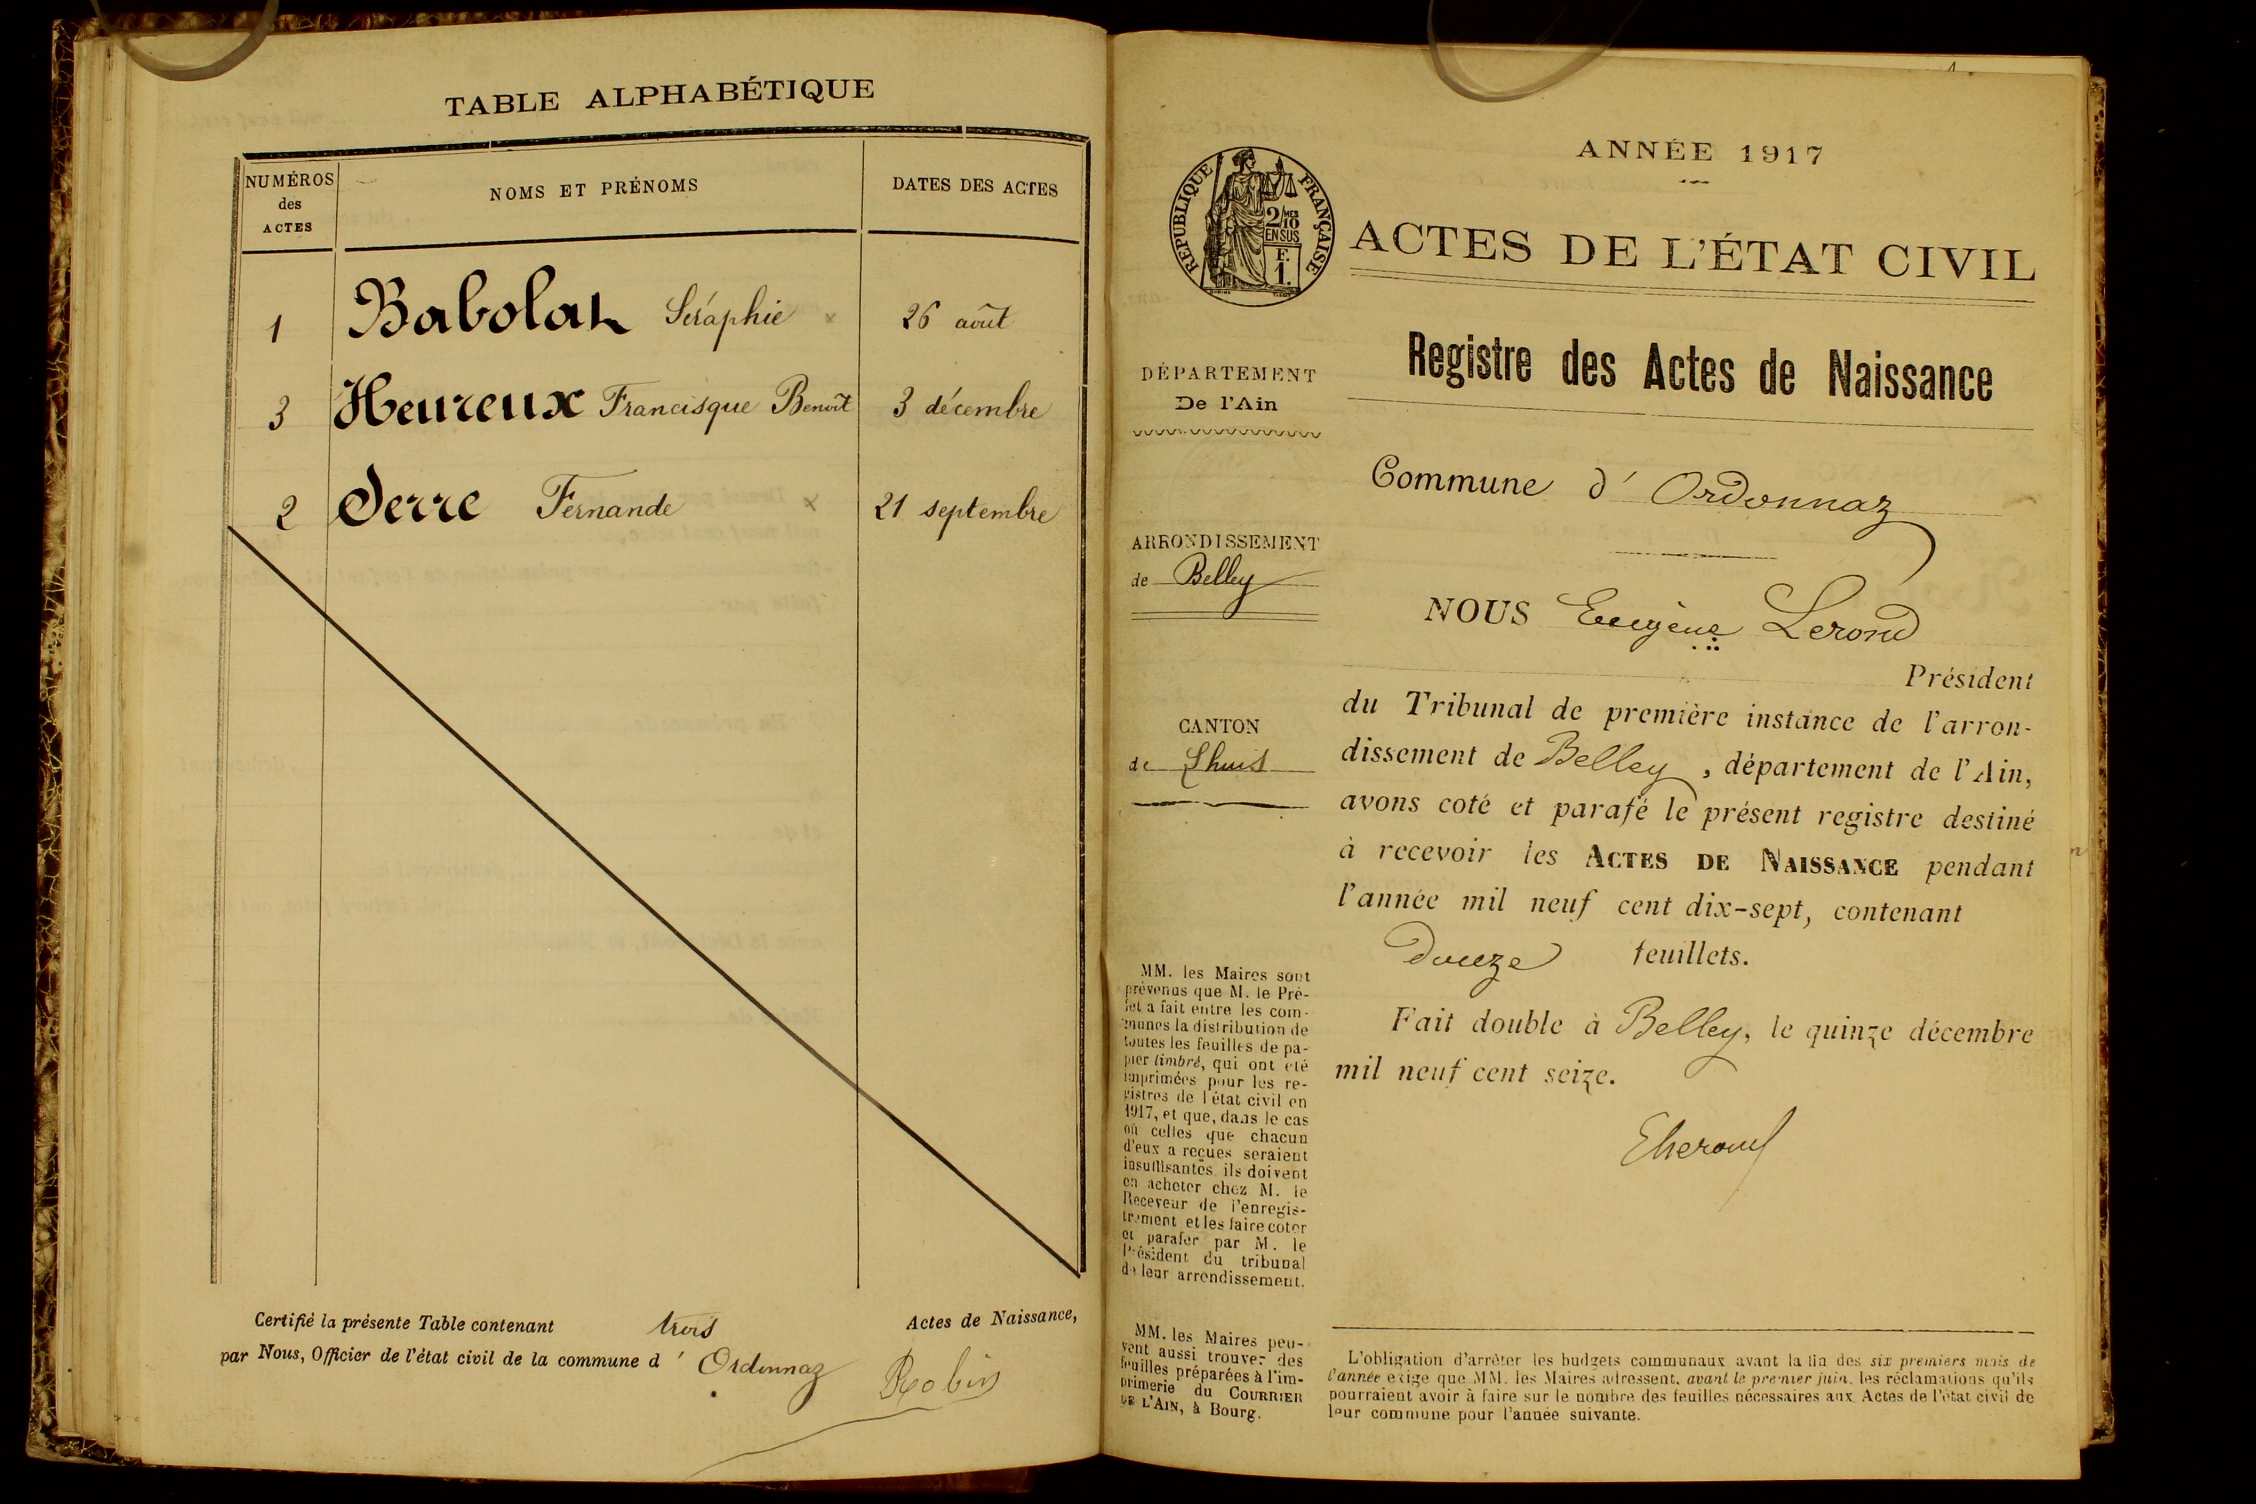 TABLE ALPHABÉTIQUE
NUMÉROS
des
ACTES
NOMS ET PRÉNOMS
DATES DES ACTES
1 Babolat Séraphie x 26 août
3 Heureux Francisque Benoît 3 décembre
2 Serre Fernande x 21 septembre
Certifié la présente Table contenant trois Actes de Naissance,
par Nous, Officier de l'état civil de la commune d' Ordonnaz
Robin
RÉPUBLIQUE FRANÇAISE
2/10
MES
EN SUS
F.
1.
DÉPARTEMENT
De l'Ain
ARRONDISSEMENT
de Belley
CANTON
de Lhuis
MM. les Maires sont
prévenus que M. le Pré-
fet a fait entre les com-
munes la distribution de
toutes les feuilles de pa-
pier timbré, qui ont été
imprimées pour les re-
gistres de l'état civil en
1917, et que, dans le cas
où celles que chacun
d'eux a reçues seraient
insuffisantes, ils doivent
en acheter chez M. le
Receveur de l'enregis-
trement et les faire coter
et parafer par M. le
Président du tribunal
de leur arrondissement.
MM. les Maires peu-
vent aussi trouver des
feuilles préparées à l'im-
primerie du COURRIER
DE L'AIN, à Bourg.
ANNÉE 1917
ACTES DE L'ÉTAT CIVIL
Registre des Actes de Naissance
Commune d' Ordonnaz
NOUS Eugène Lerond
Président
du Tribunal de première instance de l'arron-
dissement de Belley, département de l'Ain,
avons coté et parafé le présent registre destiné
à recevoir les ACTES DE NAISSANCE pendant
l'année mil neuf cent dix-sept, contenant
douze feuillets.
Fait double à Belley, le quinze décembre
mil neuf cent seize.
L'obligation d'arrêter les budgets communaux avant la fin des six premiers mois de
l'année exige que MM. les Maires adressent, avant le premier juin, les réclamations qu'ils
pourraient avoir à faire sur le nombre des feuilles nécessaires aux Actes de l'état civil de
leur commune pour l'année suivante.